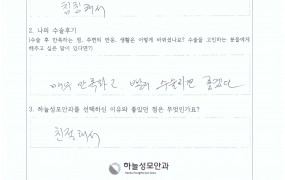 친절해서
2. 나의 수술후기
(수술 후 만족하는 점, 주변의 반응, 생활은 어떻게 바뀌셨나요? 수술을 고민하는 분들에게
해주고 싶은 말이 있다면?)
매우 만족하고 빨리 수술하면 좋겠다
3. 하늘성모안과를 선택하신 이유와 좋았던 점은 무엇인가요?
친절해서
하늘성모안과